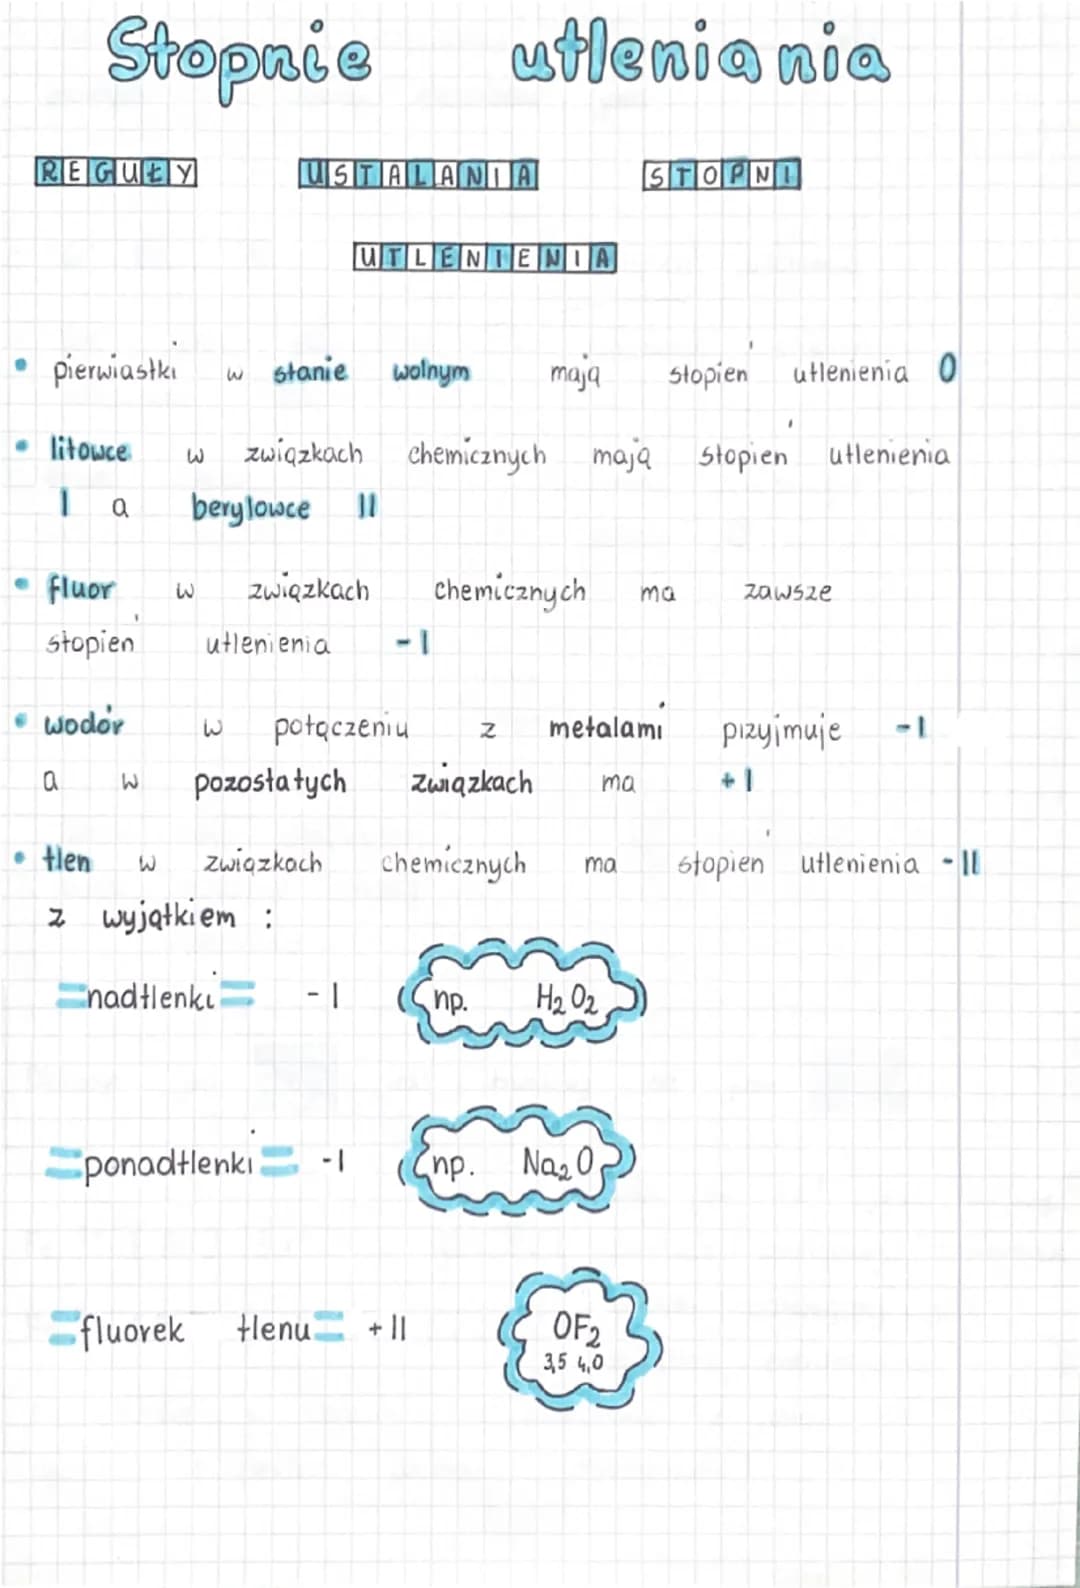 Stopnie utleniania
REGUŁY USTALANIA STOPNI
UTLENIENIA
• pierwiastki w stanie wolnym mają stopień utlenienia 0
• litowce w związkach chemicznych mają stopień utlenienia
I a berylowce II
• fluor w związkach chemicznych ma zawsze
stopień utlenienia -I
• wodór w połączeniu z metalami przyjmuje -I
a w pozostałych związkach ma +I
• tlen w związkach chemicznych ma stopień utlenienia -II
z wyjątkiem :
=nadtlenki= -I np. H2O2
=ponadtlenki= -I np. Na2O
=fluorek tlenu= +II OF2
3,5 4,0